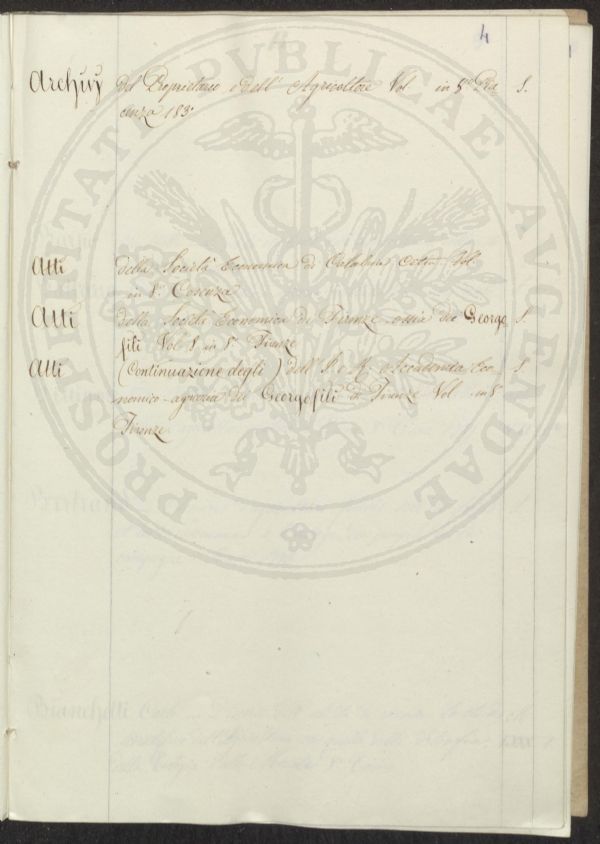 4
Archivj del Proprietario e dell' Agricoltore Vol in 8º Pia S.
cenza 183
Atti della Società Economica di Calabria Citra Vol.
in 8º Cosenza
Atti della Società Economica di Firenze ossia dei George S.
fili Vol 8 in 8º Firenze
Atti (Continuazione degli) dell' I. e R. Accademia Eco S.
nomico-agraria dei Georgofili di Firenze Vol in 8
Firenze
PROSPERITATI PUBLICAE AUGENDAE
Bianchetti